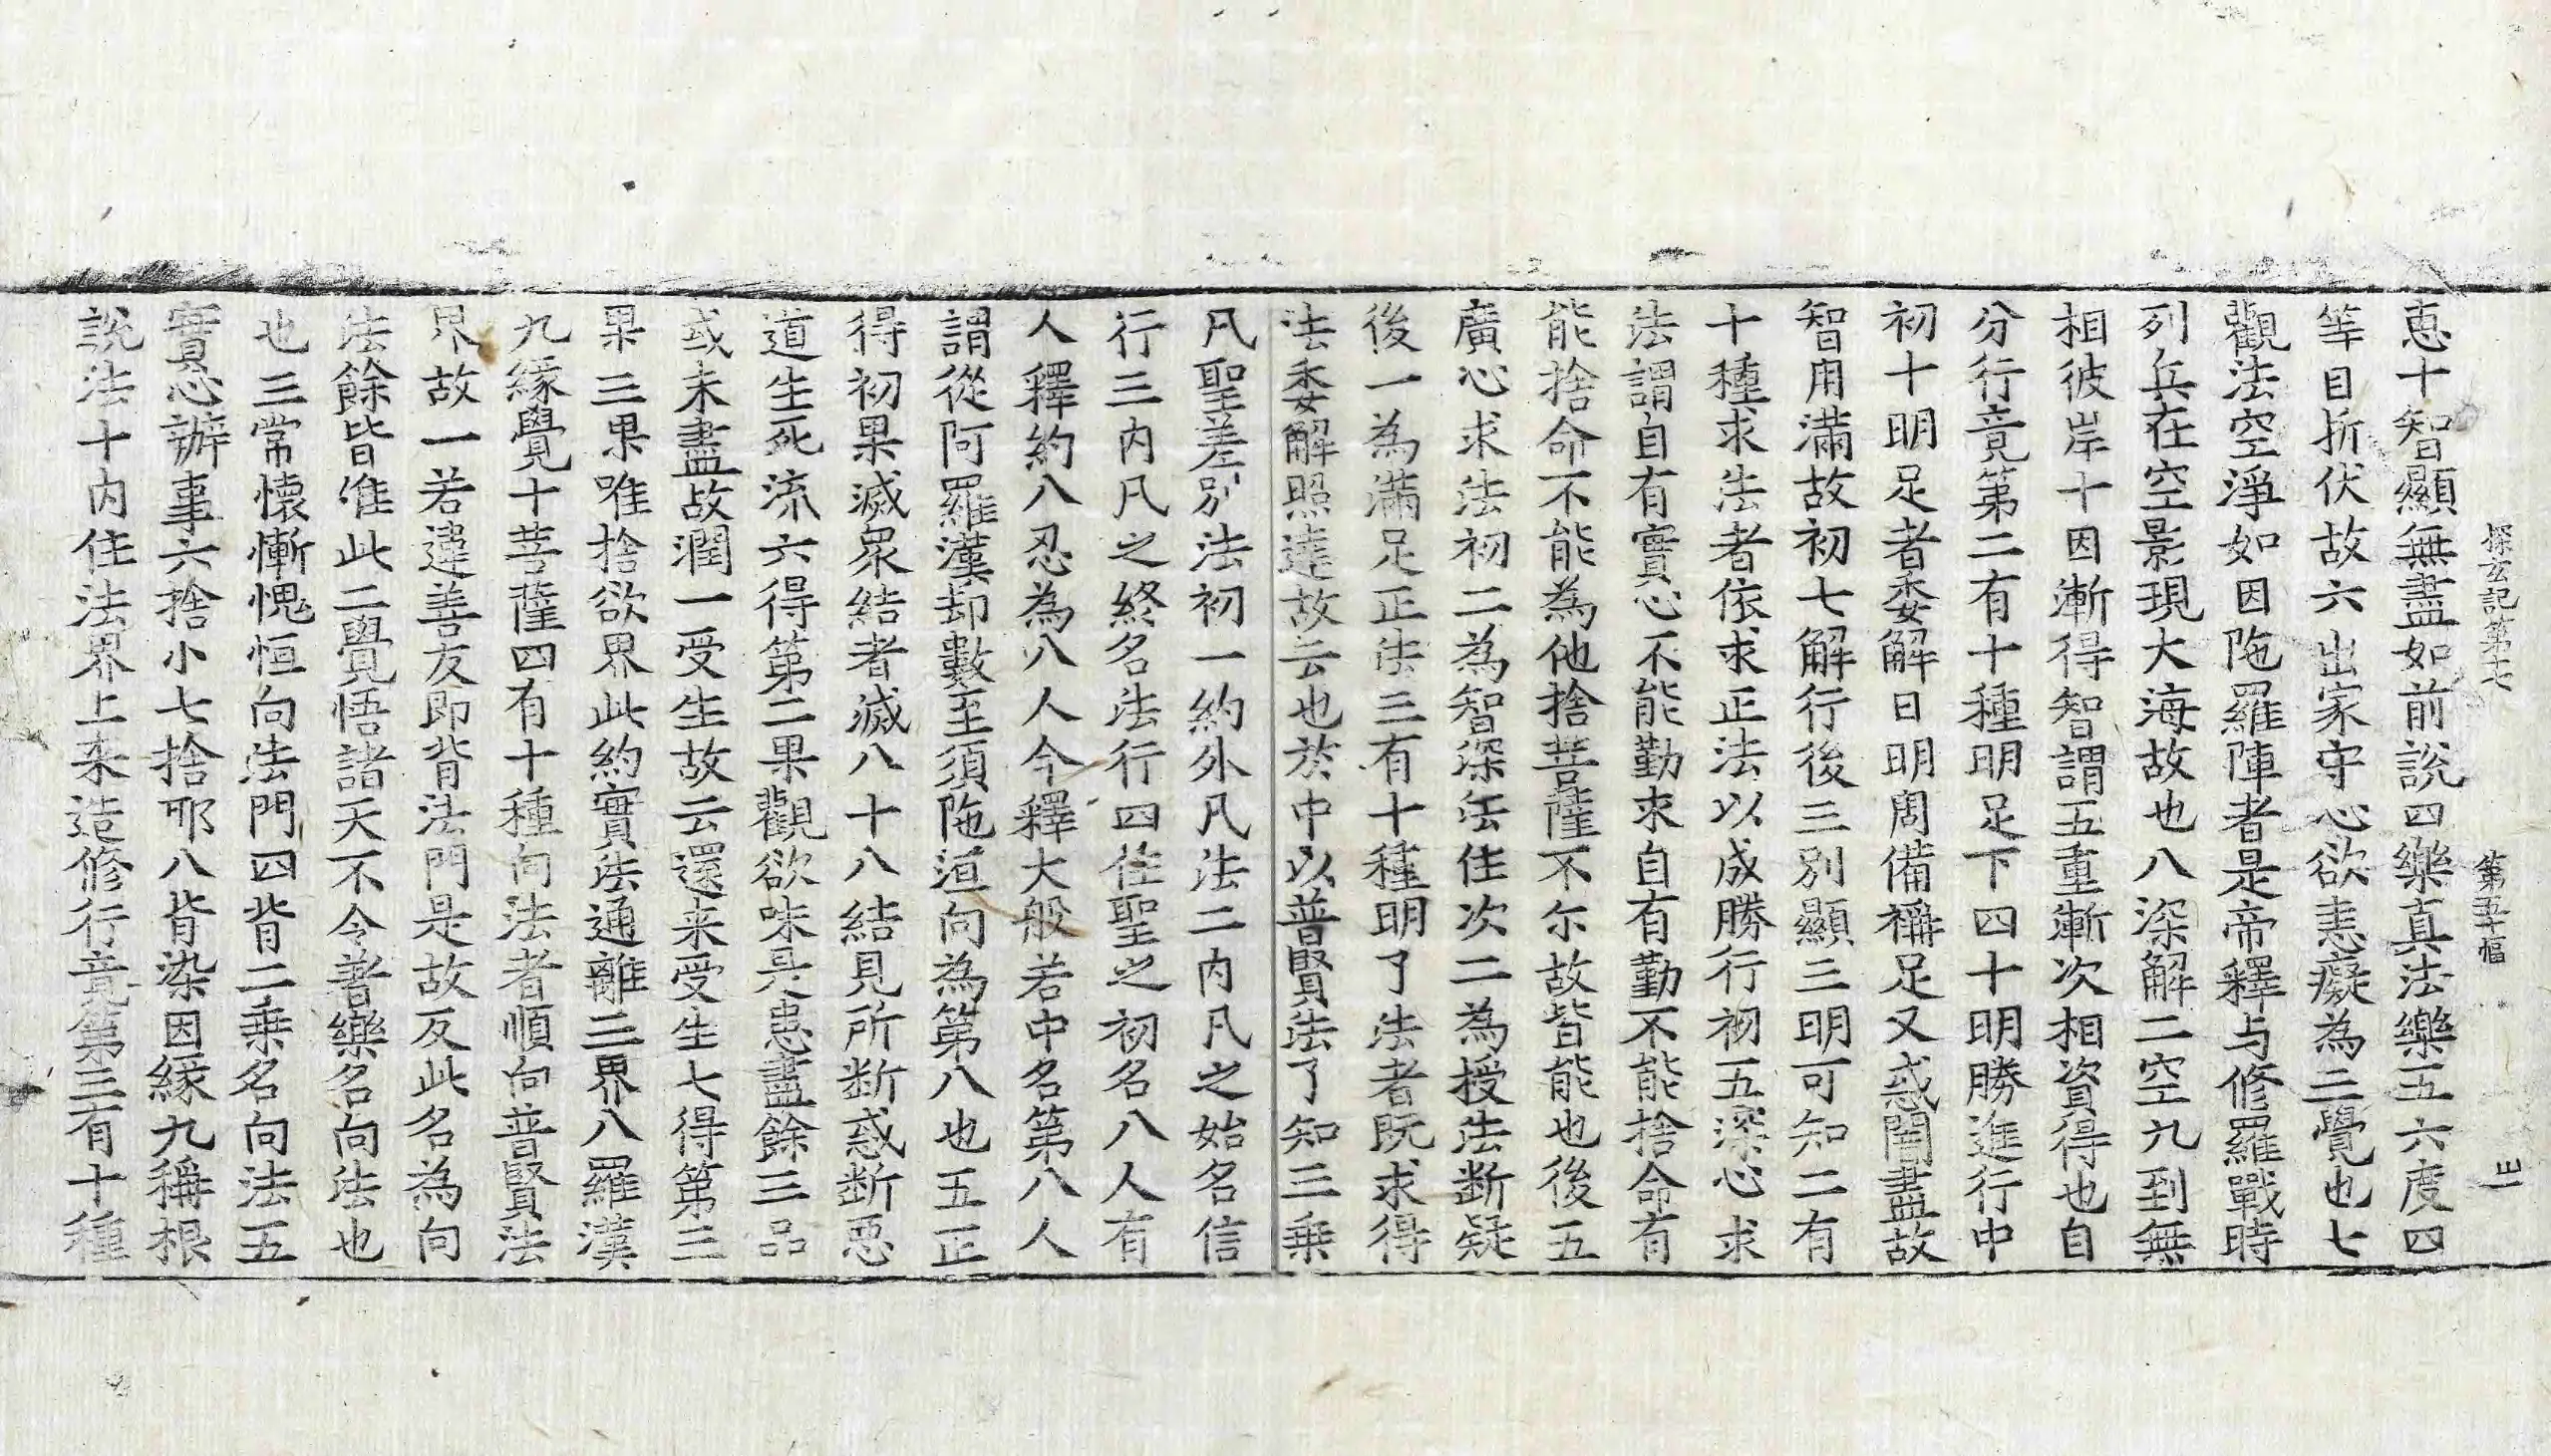 探玄記第十七　第五十幅　
惠十智顯無盡如前說四樂真法樂五六度四
等目折伏故六出家守心欲恚癡為三覺也七
觀法空淨如因陁羅陣者是帝釋与修羅戰時
列兵在空景現大海故也八深解二空九到無
相彼岸十因漸得智謂五重漸次相資得也自
分行竟第二有十種明足下四十明勝進行中
初十明足者委解日明周備稱足又惑闇盡故
智用滿故初七解行後三別顯三明可知二有
十種求法者依求正法以成勝行初五深心求
法謂自有實心不能勤求自有勤不能捨命有
能捨命不能為他捨菩薩不尓故皆能也後五
廣心求法初二為智深缶住次二為授法断疑
後一為滿足正法三有十種明了法者既求得
法委解照達故云也於中以普賢法了知三乗
凡聖差別法初一約外凡法二内凡之始名信
行三内凡之終名法行四住聖之初名八人有
人釋約八忍為八人今釋大般若中名第八人
謂從阿羅漢却數至須陁洹向為第八也五正
得初果滅眾結者滅八十八結見所断惑断惡
道生死流六得第二果觀欲味具患盡餘三品
或未盡故潤一受生故云還来受生七得第三
果三果唯捨欲界此約實法通離二界八羅漢
九緣覺十菩薩四有十種向法者順向普賢法
界故一若違善友即背法門是故反此名為向
法餘皆准此二覺悟諸天不令著樂名向法也
也三常懷慚愧恒向法門四背二乗名向法五
實心辦事六捨小七捨邪八背染因緣九稱根
說法十内住法界上来造修行竟第三有十種